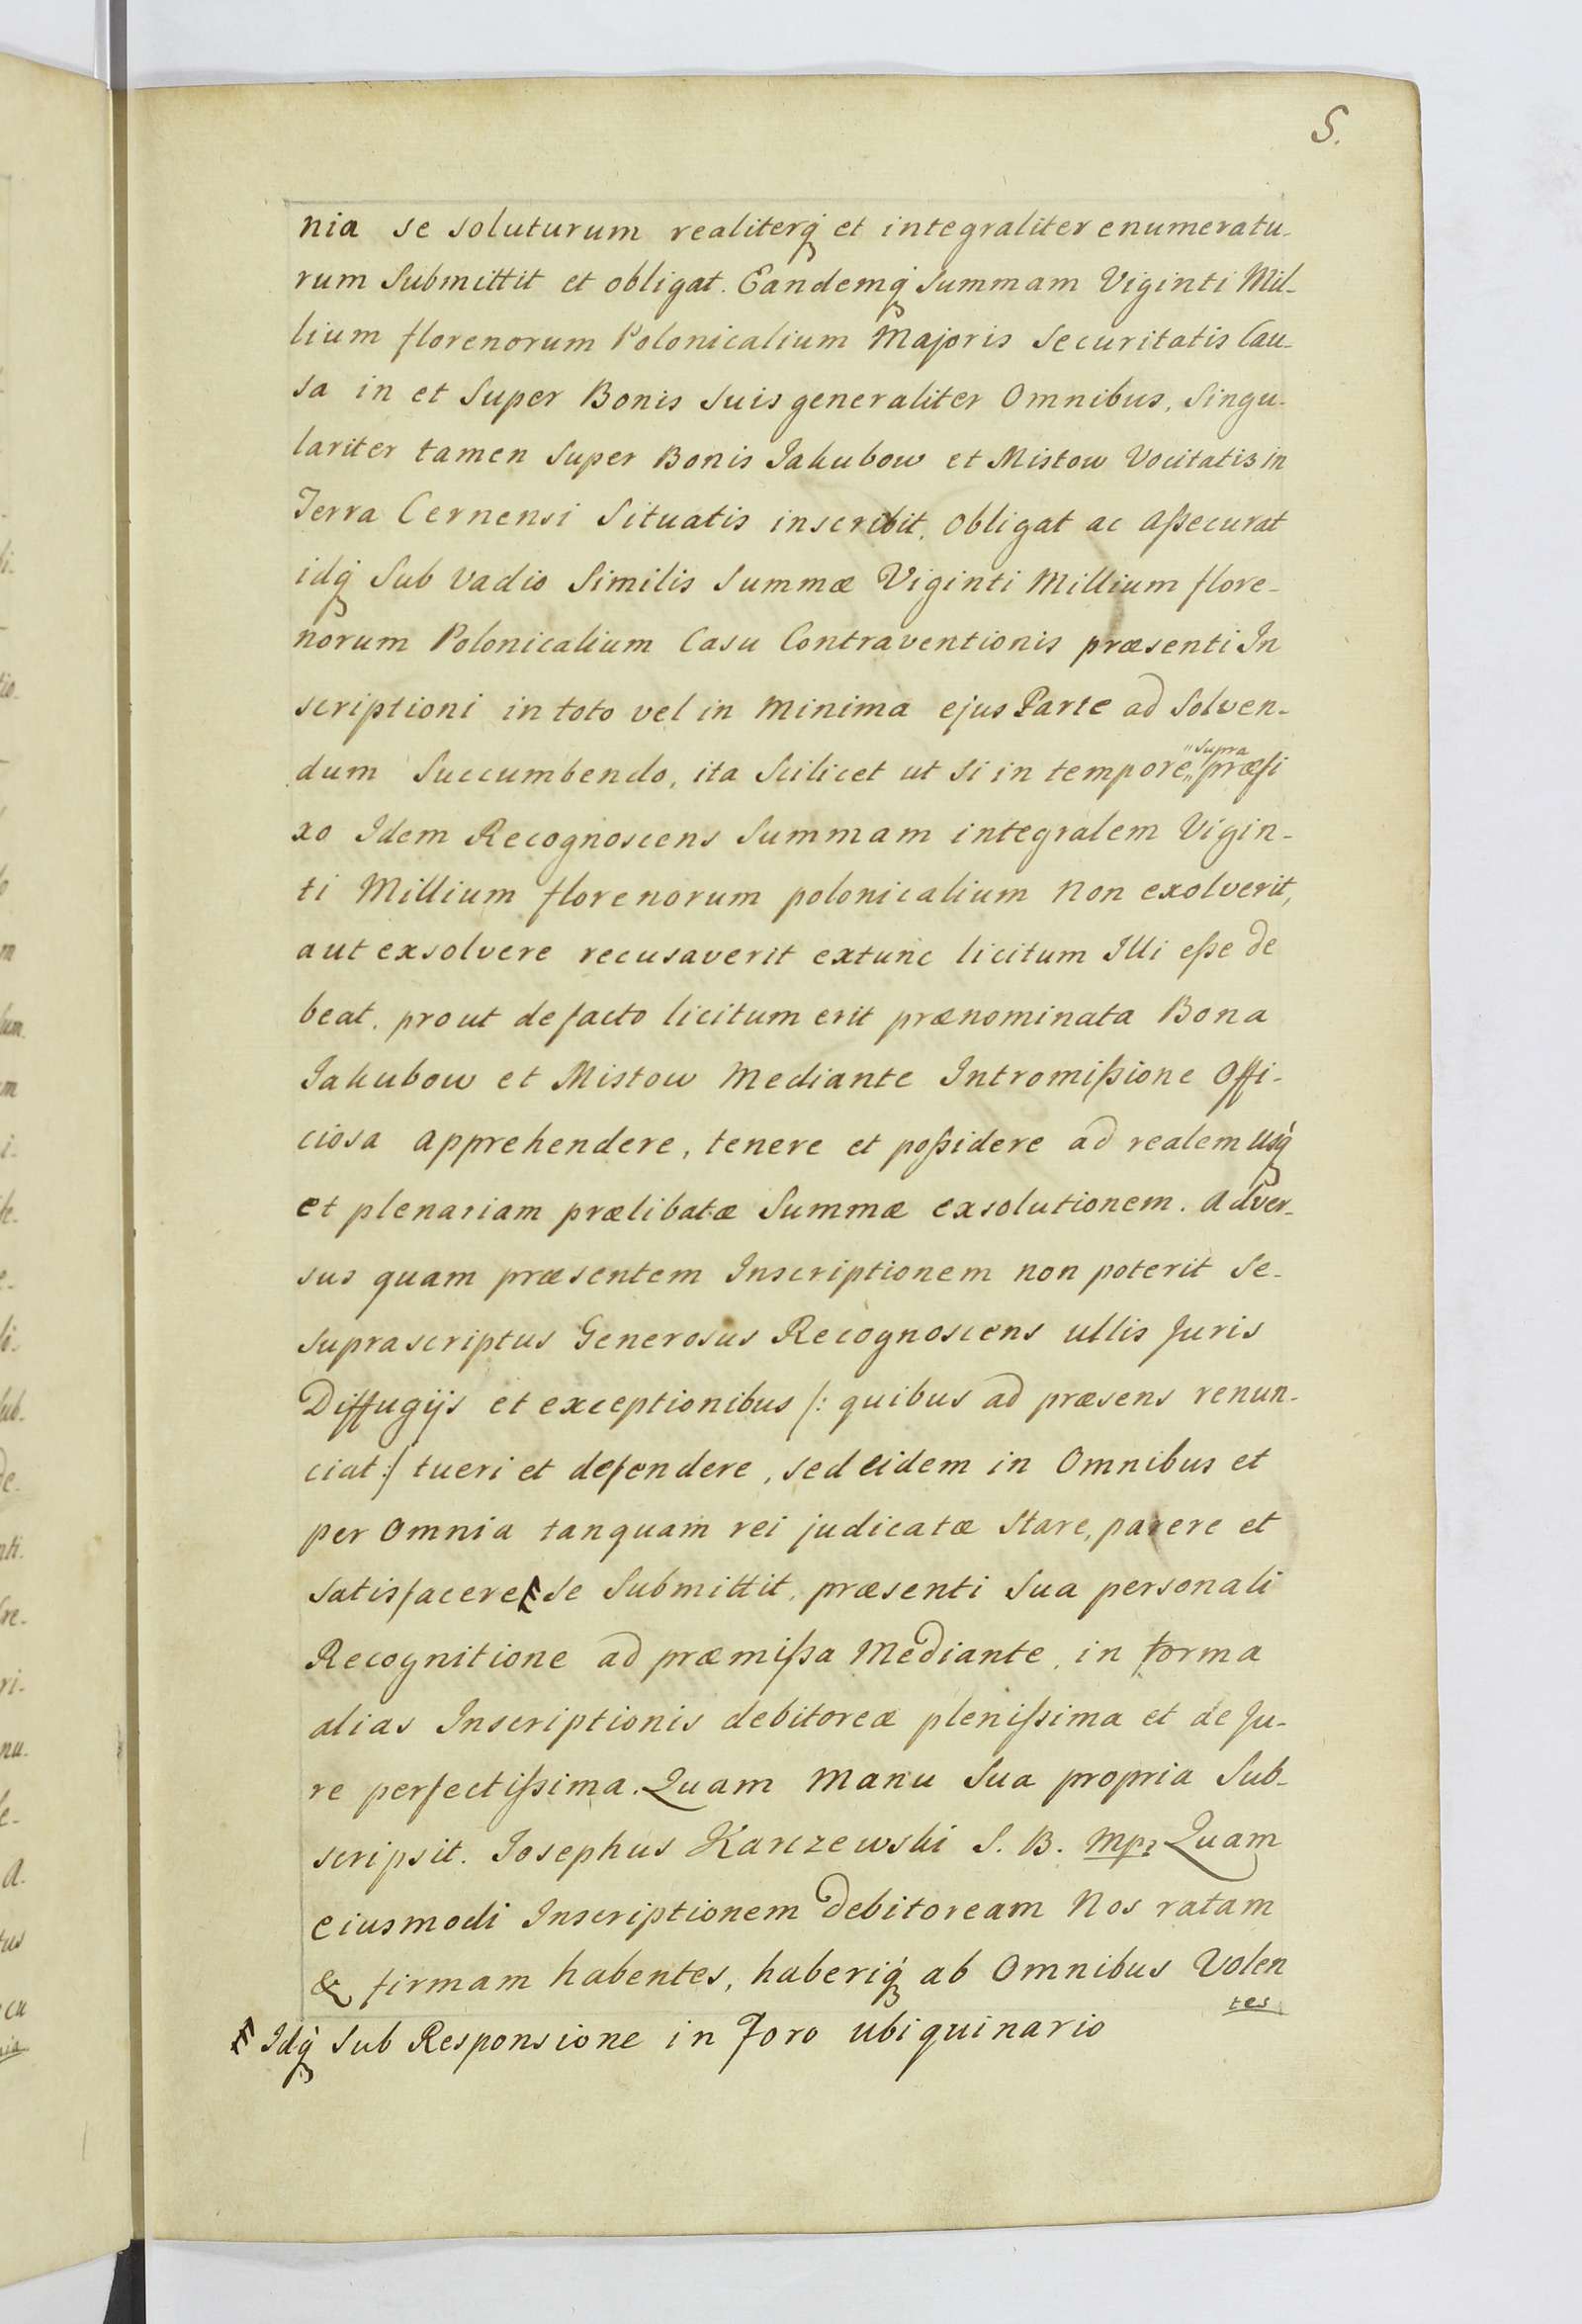 5.
nia se soluturum realiterq́ et integraliter enumeratu-
rum Submittit et obligat. Eandemq́ Summam Viginti Mil-
lium florenorum Polonicalium Majoris Securitatis Cau-
sa in et Super Bonis Suis generaliter Omnibus, Singu-
lariter tamen Super Bonis Jakubow et Mistow Vocitatis in
Terra Cernensi Situatis inscribit, obligat ac aßecurat
idq́ Sub vadio Similis Summæ Viginti Millium flore-
norum Polonicalium Casu Contraventionis præsenti In
scriptioni in toto vel in minima ejus Parte ad Solven-
dum Succumbendo, ita Scilicet ut Si in tempore „supra„ præfi
xo Idem Recognoscens Summam integralem Vigin-
ti Millium florenorum polonicalium non exolverit,
aut exsolvere recusaverit extunc licitum Illi eße de
beat, prout de facto licitum erit prænominata Bona
Jakubow et Mistow mediante Intromißione Offi-
ciosa apprehendere, tenere et poßidere ad realem usq́
et plenariam prælibatæ Summæ exsolutionem. Adver-
sus quam præsentem Inscriptionem non poterit Se-
suprascriptus Generosus Recognoscens ullis Juris
Diffugijs et exceptionibus /: quibus ad præsens renun-
ciat :/ tueri et defendere, sed eidem in Omnibus et
per Omnia tanquam rei judicatæ Stare, parere et
Satisfacere Se Submittit, præsenti Sua personali
Recognitione ad præmißa Mediante, in forma
alias Inscriptionis debitoreæ plenißima et de Ju-
re perfectißima. Quam manu Sua propria Sub-
scripsit. Josephus Karczewski S. B. mp. Quam
eiusmodi Inscriptionem debitoream Nos ratam
& firmam habentes, haberiq́ ab Omnibus Volen
tes
Idq́ Sub Responsione in Foro ubiquinario